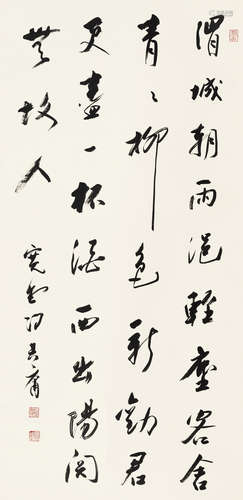 渭城朝雨浥輕塵客舍
青〻柳色新勸君
更盡一杯酒西出陽關
無故人
寬堂馮其庸